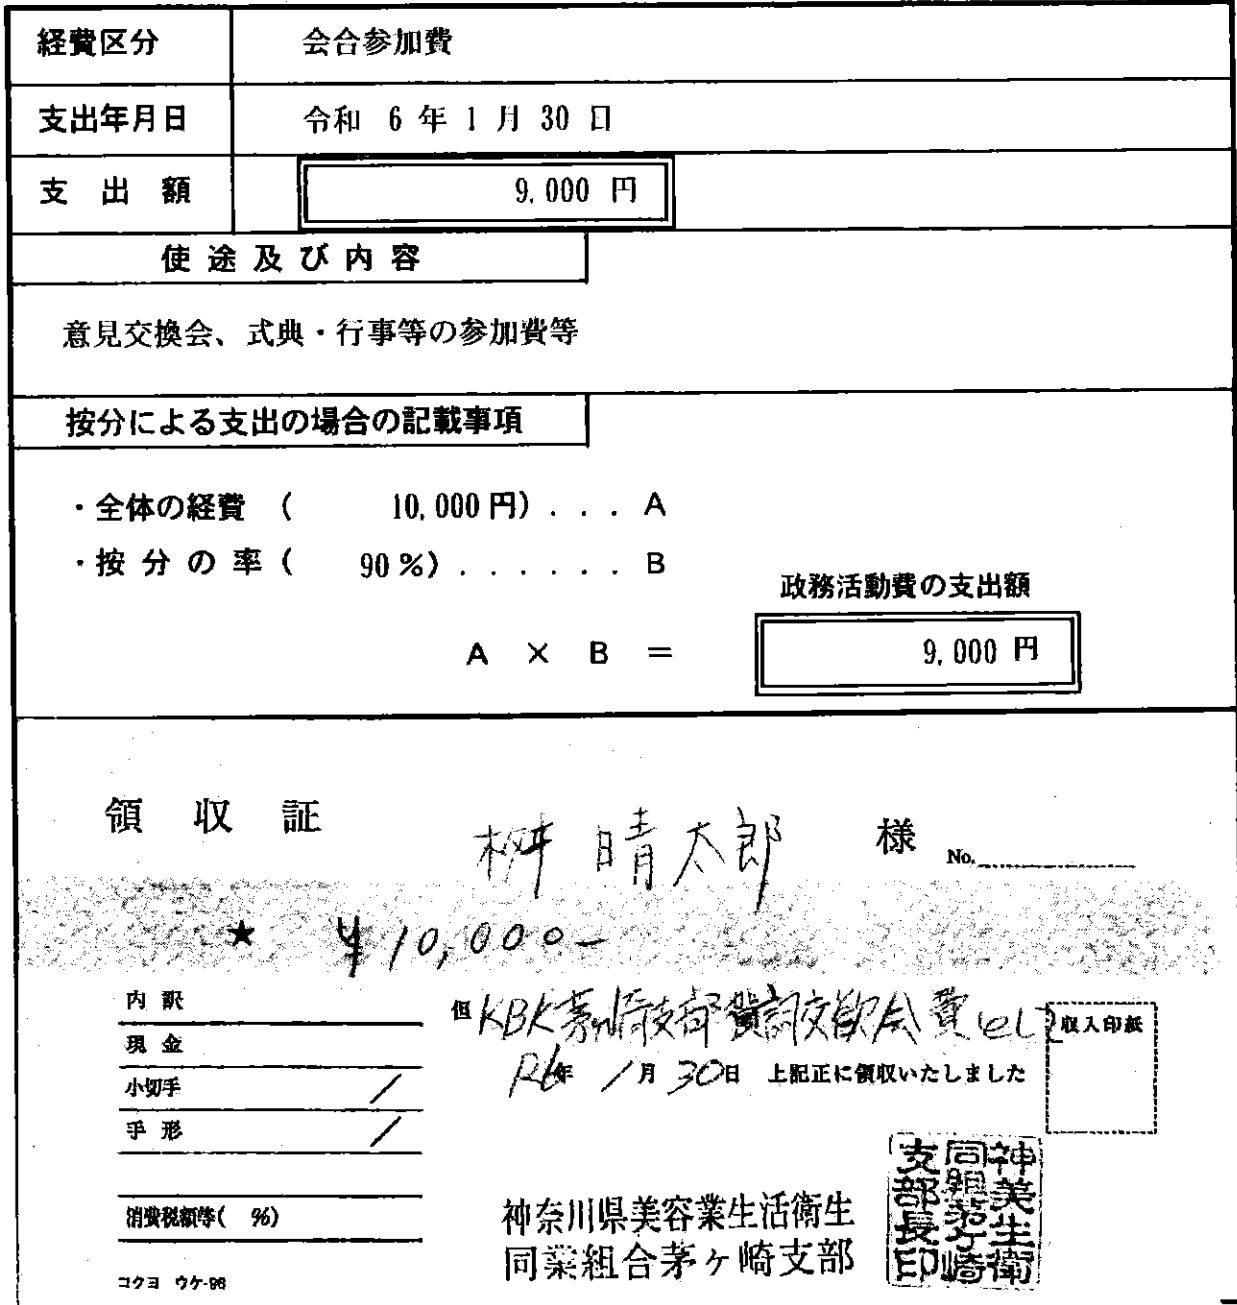 経費区分 会合参加費
支出年月日 令和 6 年 1 月 30 日
支出額 9,000 円
使途及び内容
意見交換会、式典・行事等の参加費等
按分による支出の場合の記載事項
・全体の経費 ( 10,000 円) . . . A
・按分の率 ( 90 %) . . . . . . . B
政務活動費の支出額
A × B = 9,000 円
領収証 桝 晴太郎 様 No.
★ ¥10,000-
内訳
但 KBK茅ヶ崎支部賀詞交歓会費として
収入印紙
現金
R6年 1月 30日 上記正に領収いたしました
小切手 /
手形 /
消費税額等( %)
神奈川県美容業生活衛生
同業組合茅ヶ崎支部
神美生衛
同組茅ケ崎
支部長印
コクヨ ウケ-98